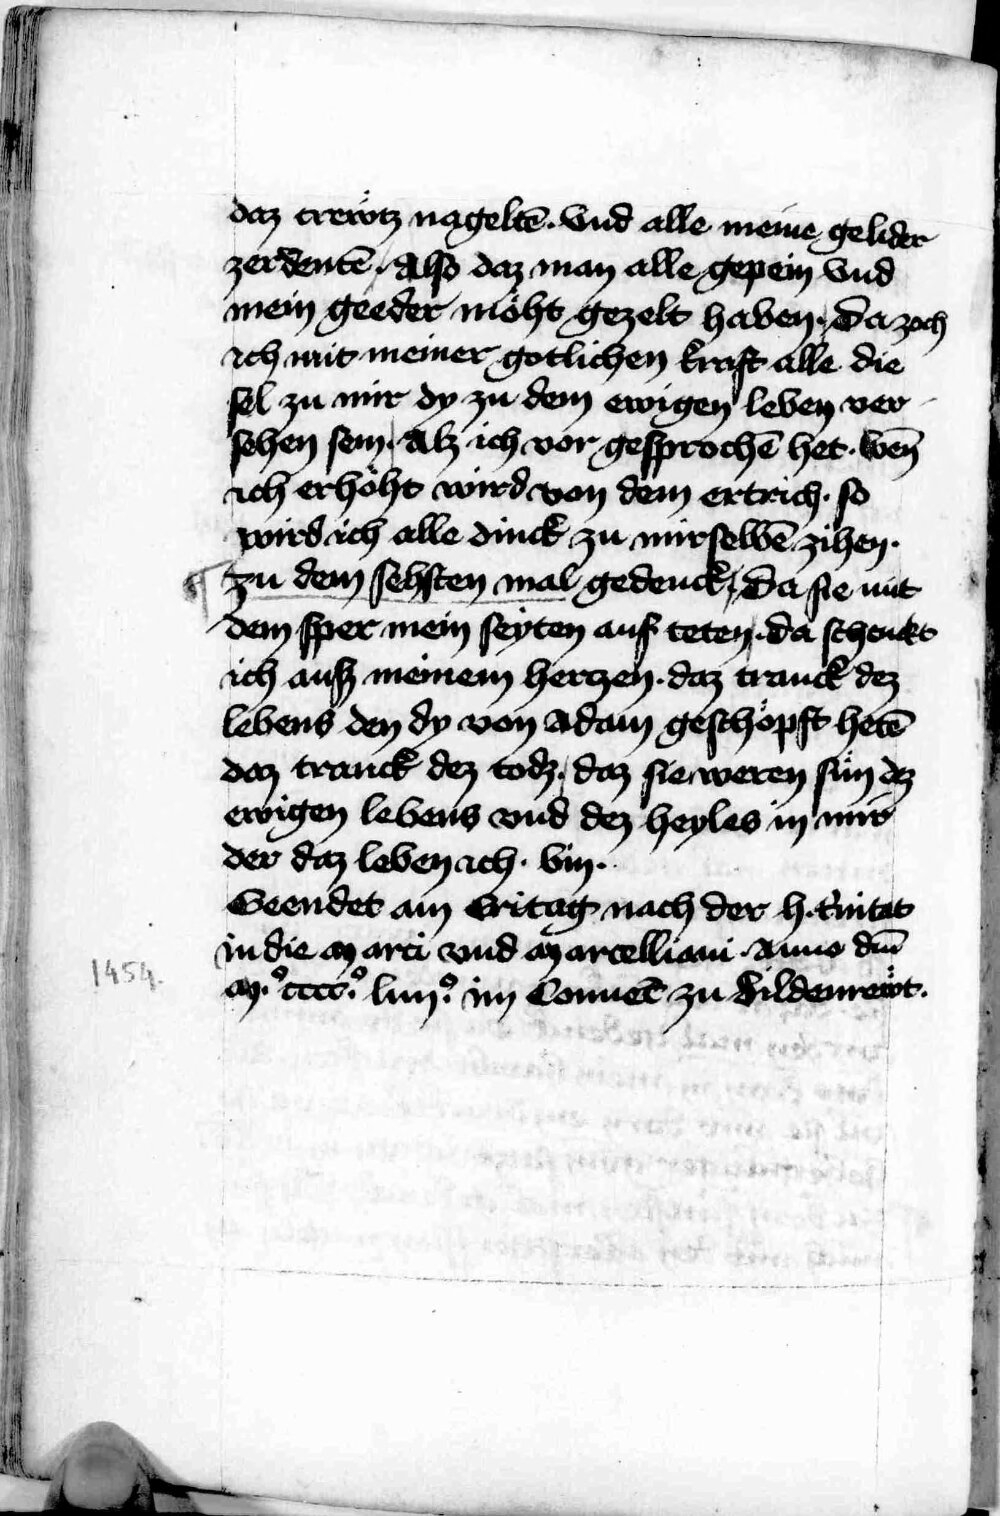 daz crewtz nageltē. Vnd alle meine gelider
zerdentē. Also daz man alle gepein Vnd
mein geeder möht gezelt haben. Da zoch
ich mit meiner gotlichen kraft alle die
sel zu mir dy zu dem ewigen leben ver
sehen sein. Alz ich vor gesprochē het. Wen̄
ich erhöht wird von dem ertrich. so
wird ich alle dinck zu mir selbē zihen.
Zu dem sehsten mal gedenck, Da sie mit
dem sper mein seyten auf teten. da schenckt
ich auß meinem hertzen. daz tranck dez
lebens den dy von Adam geschöpft hetē
daz tranck dez todz. daz sie weren sün dez
ewigen lebens vnd dez heyles in mir
der daz leben ich. bin.
Geendet am Vritag nach der h. t'nitat
in die Marci vnd Marcelliani. Anno dnī
1454.
M.º cccc.º liiij.º im Conuēt zu Pildenrewt.